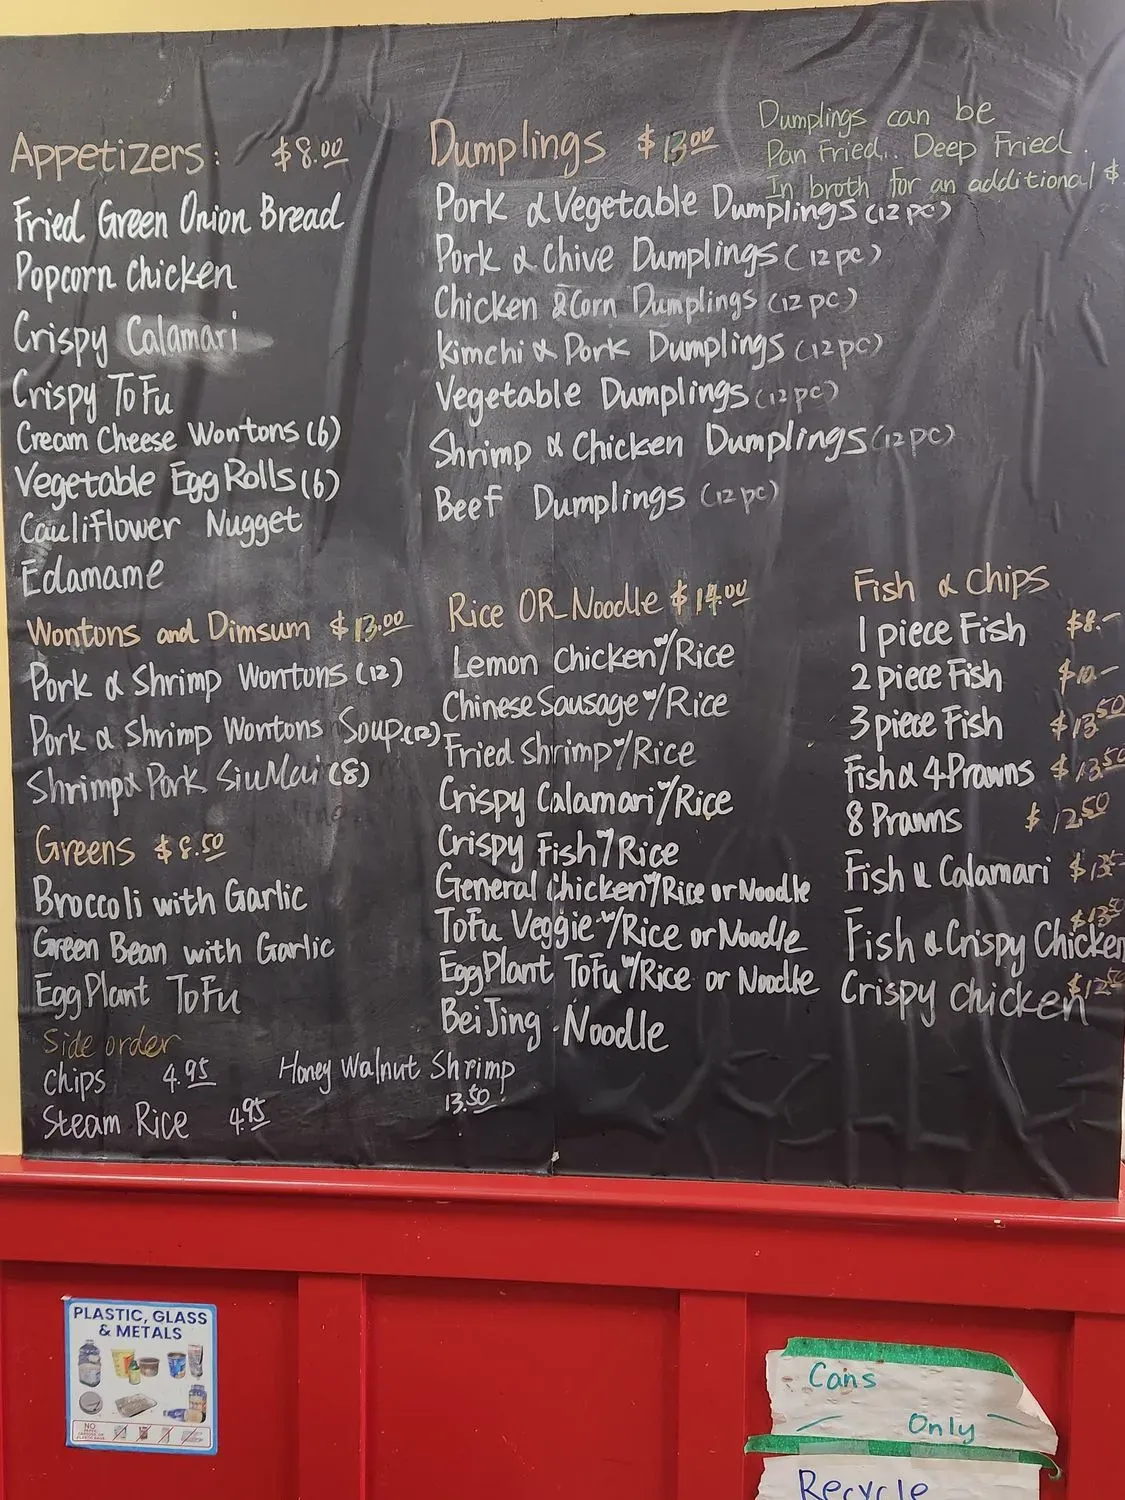 Appetizers: $8.00
Fried Green Onion Bread
Popcorn Chicken
Crispy Calamari
Crispy ToFu
Cream Cheese Wontons (6)
Vegetable Egg Rolls (6)
Cauliflower Nugget
Edamame
Wontons and Dimsum $13.00
Pork & Shrimp Wontons (12)
Pork & Shrimp Wontons Soup (12)
Shrimp & Pork Siu Mai (8)
Greens $8.50
Broccoli with Garlic
Green Bean with Garlic
EggPlant ToFu
Side order
Chips 4.95
Steam Rice 4.95
Honey Walnut Shrimp
13.50
Dumplings $13.00
Dumplings can be
Pan Fried, Deep Fried.
In broth for an additional $
Pork & Vegetable Dumplings (12 pc)
Pork & Chive Dumplings (12 pc)
Chicken & Corn Dumplings (12 pc)
Kimchi & Pork Dumplings (12 pc)
Vegetable Dumplings (12 pc)
Shrimp & Chicken Dumplings (12 pc)
Beef Dumplings (12 pc)
Rice OR Noodle $14.00
Lemon Chicken w/Rice
Chinese Sausage w/Rice
Fried Shrimp w/Rice
Crispy Calamari w/Rice
Crispy Fish w/Rice
General Chicken w/Rice or Noodle
ToFu Veggie w/Rice or Noodle
EggPlant ToFu w/Rice or Noodle
BeiJing Noodle
Fish & Chips
1 piece Fish $8.-
2 piece Fish $10.-
3 piece Fish $13.50
Fish & 4 Prawns $13.50
8 Prawns $12.50
Fish & Calamari
Fish & Crispy Chicken $13.50
Crispy Chicken $12.50
PLASTIC, GLASS
& METALS
NO
Cans
Only
Recycle